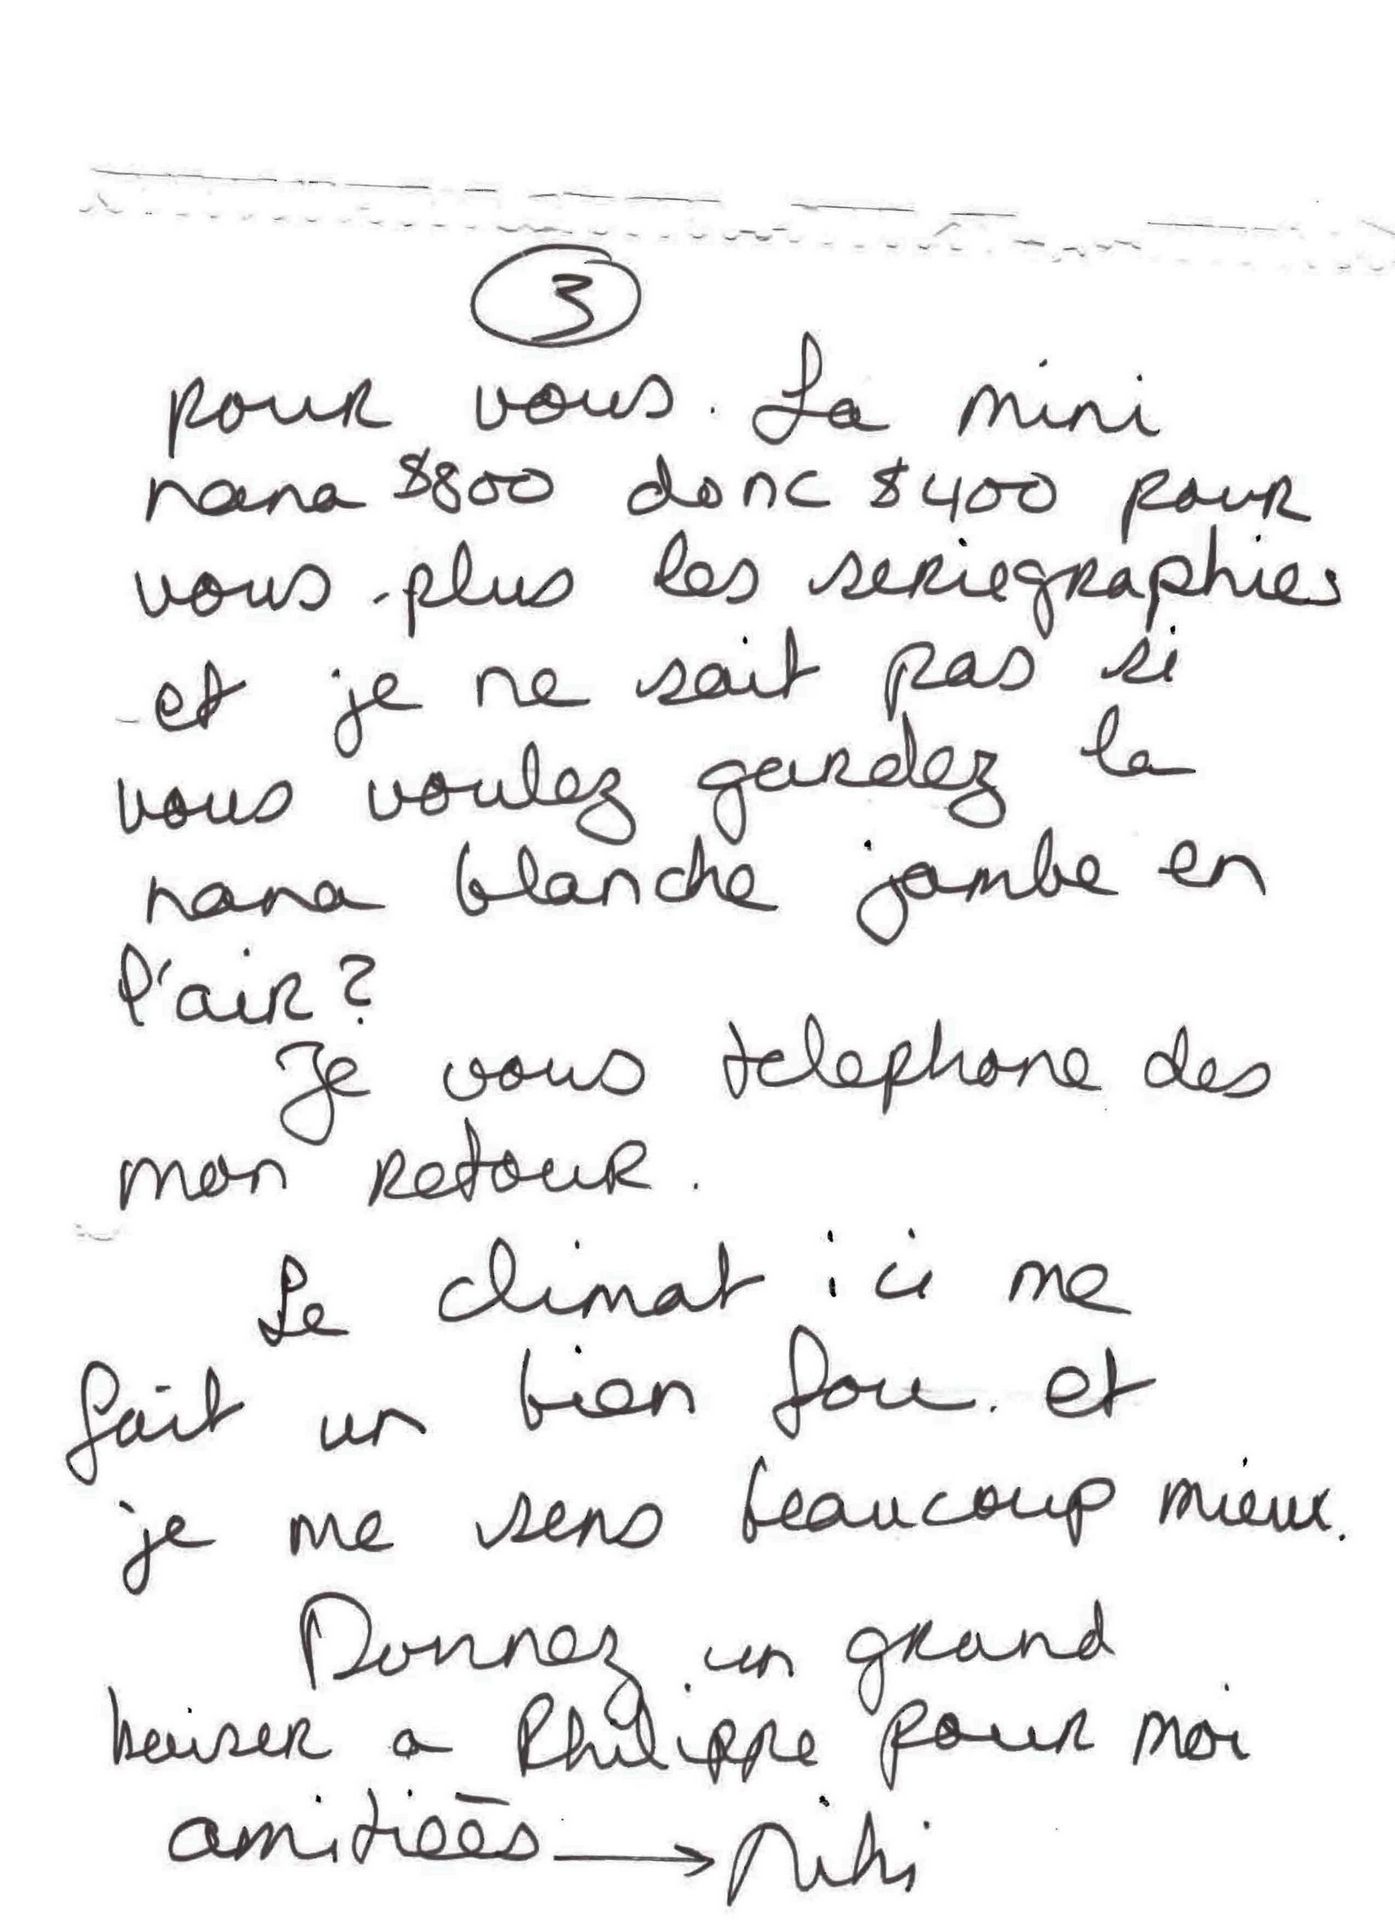 3
pour vous. La mini
nana $800 donc $400 pour
vous - plus les seriegraphies
et je ne sait pas si
vous voulez gardez la
nana blanche jambe en
l'air?
Je vous telephone des
mon retour.
Le climat ici me
fait un bien fou. et
je me sens beaucoup mieux.
Donnez un grand
baiser a Philippe pour moi
amitieēs → Niki